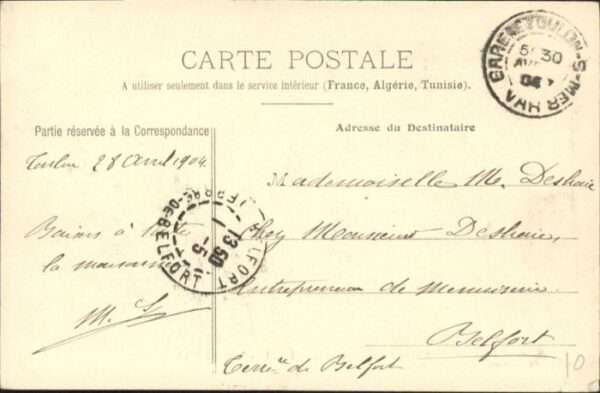 CARTE POSTALE
A utiliser seulement dans le service intérieur (France, Algérie, Tunisie).
Partie réservée à la Correspondance
Adresse du Destinataire
Toulon 28 Avril 1904
Baisers à toute
la maisonnée
M. S
Mademoiselle M.
Chez Monsieur
Entrepreneur de Menuiserie
Belfort
Terre. de Belfort
TOULON-S-MER VAR
5 30
04
BELFORT
13 50
1 -5
10